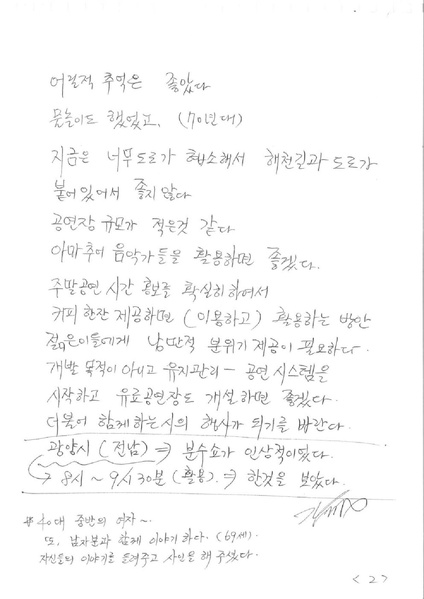 어릴적 추억은 좋았다
물놀이도 했었고. (70년대)
지금은 너무 도로가 협소해서 해천길과 도로가
붙어있어서 좋지 않다
공연장 규모가 적은것 같다
아마추어 음악가들을 활용하면 좋겠다.
주말공연 시간 홍보를 확실히 하여서
커피 한잔 제공하면 (이용하고) 활용하는 방안
젊은이들에게 낭만적 분위기 제공이 필요하다.
개발 목적이 아니고 유지관리 - 공연 시스템을
시작하고 유료공연장도 개설하면 좋겠다.
더불어 함께하는 시의 행사가 되기를 바란다.
광양시 (전남) ⇒ 분수쇼가 인상적이었다.
→ 8시~9시30분 (활용) ⇒ 한것을 보았다.
#40대 중반의 여자~
또, 남자분과 함께 이야기 하다. (69세)
자신들의 이야기를 들려주고 사인을 해 주셨다.
<2>